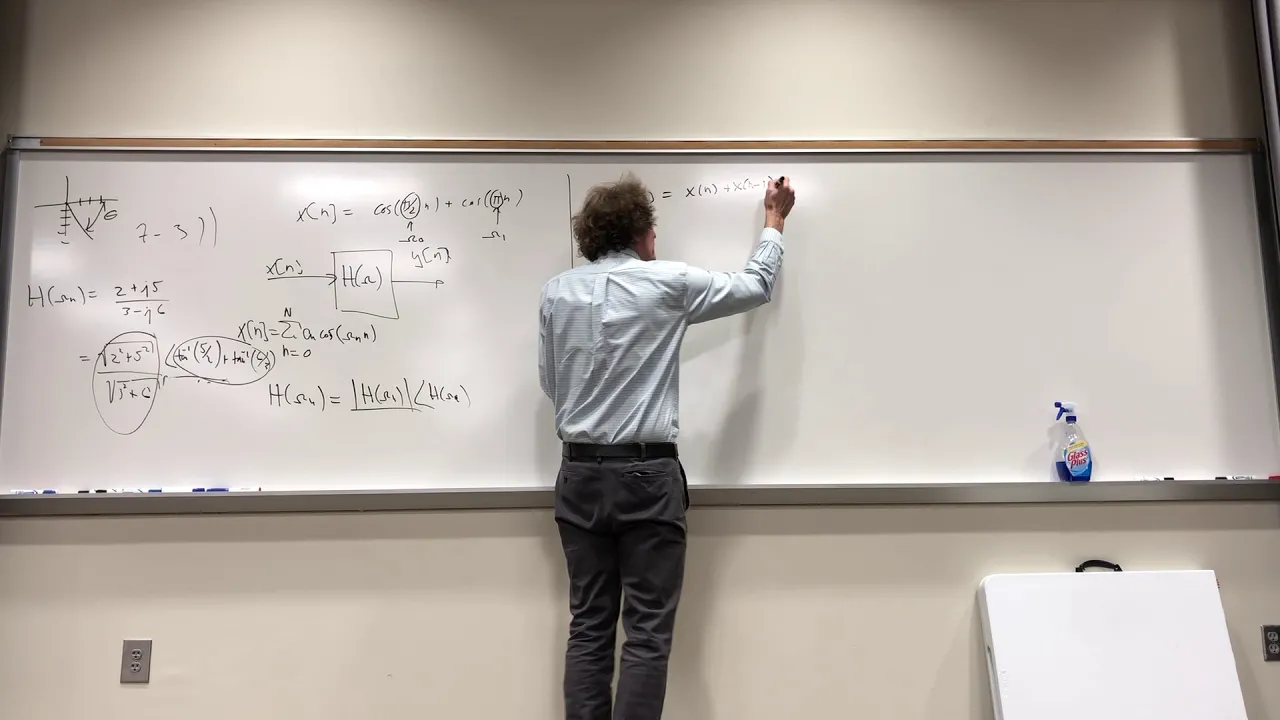 θ
7 - 3))
H(Ωₙ) = (2+j5)/(3-j6)
= √(2²+5²)/√(3²+6) ∠tan⁻¹(5/2) + tan⁻¹(6/3)
x[n] = cos((π/2)n) + cos((π)n)
Ω₀ Ω₁
x[n] H(Ω) y[n]
N
x[n] = Σ aₙ cos(Ωₙn)
n=0
H(Ωₙ) = |H(Ωₙ)| ∠H(Ωₙ)
) = x(n) + x(n-1)
Glass Plus